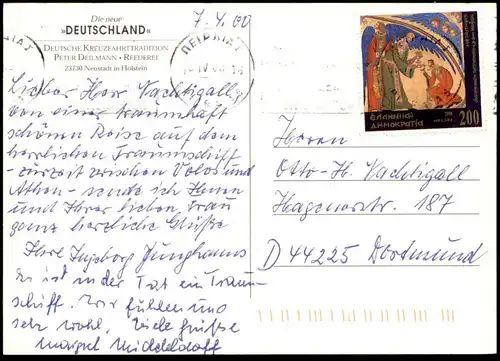 Die neue
»DEUTSCHLAND«
DEUTSCHE KREUZFAHRTTRADITION
PETER DEILMANN · REEDEREI
23730 Neustadt in Holstein
7.4.00
ΠΕΙΡΑΙΑΣ
ΕΛΛΗΝΙΚΗ
ΔΗΜΟΚΡΑΤΙΑ
HELLAS
200
Lieber Herr Nachtigall,
von einer traumhaft
schönen Reise auf dem
herrlichen Traumschiff -
zurzeit zwischen Volos und
Athen - sende ich Ihnen
und Ihrer lieben Frau
ganz herzliche Grüße
Ihre Ingeborg Junghanns
Es ist in der Tat ein Traum-
schiff. Wir fühlen uns
sehr wohl. Viele Grüße
Middeldorff
Herrn
Otto-H. Nachtigall
Hagenerstr. 187
D 44225 Dortmund